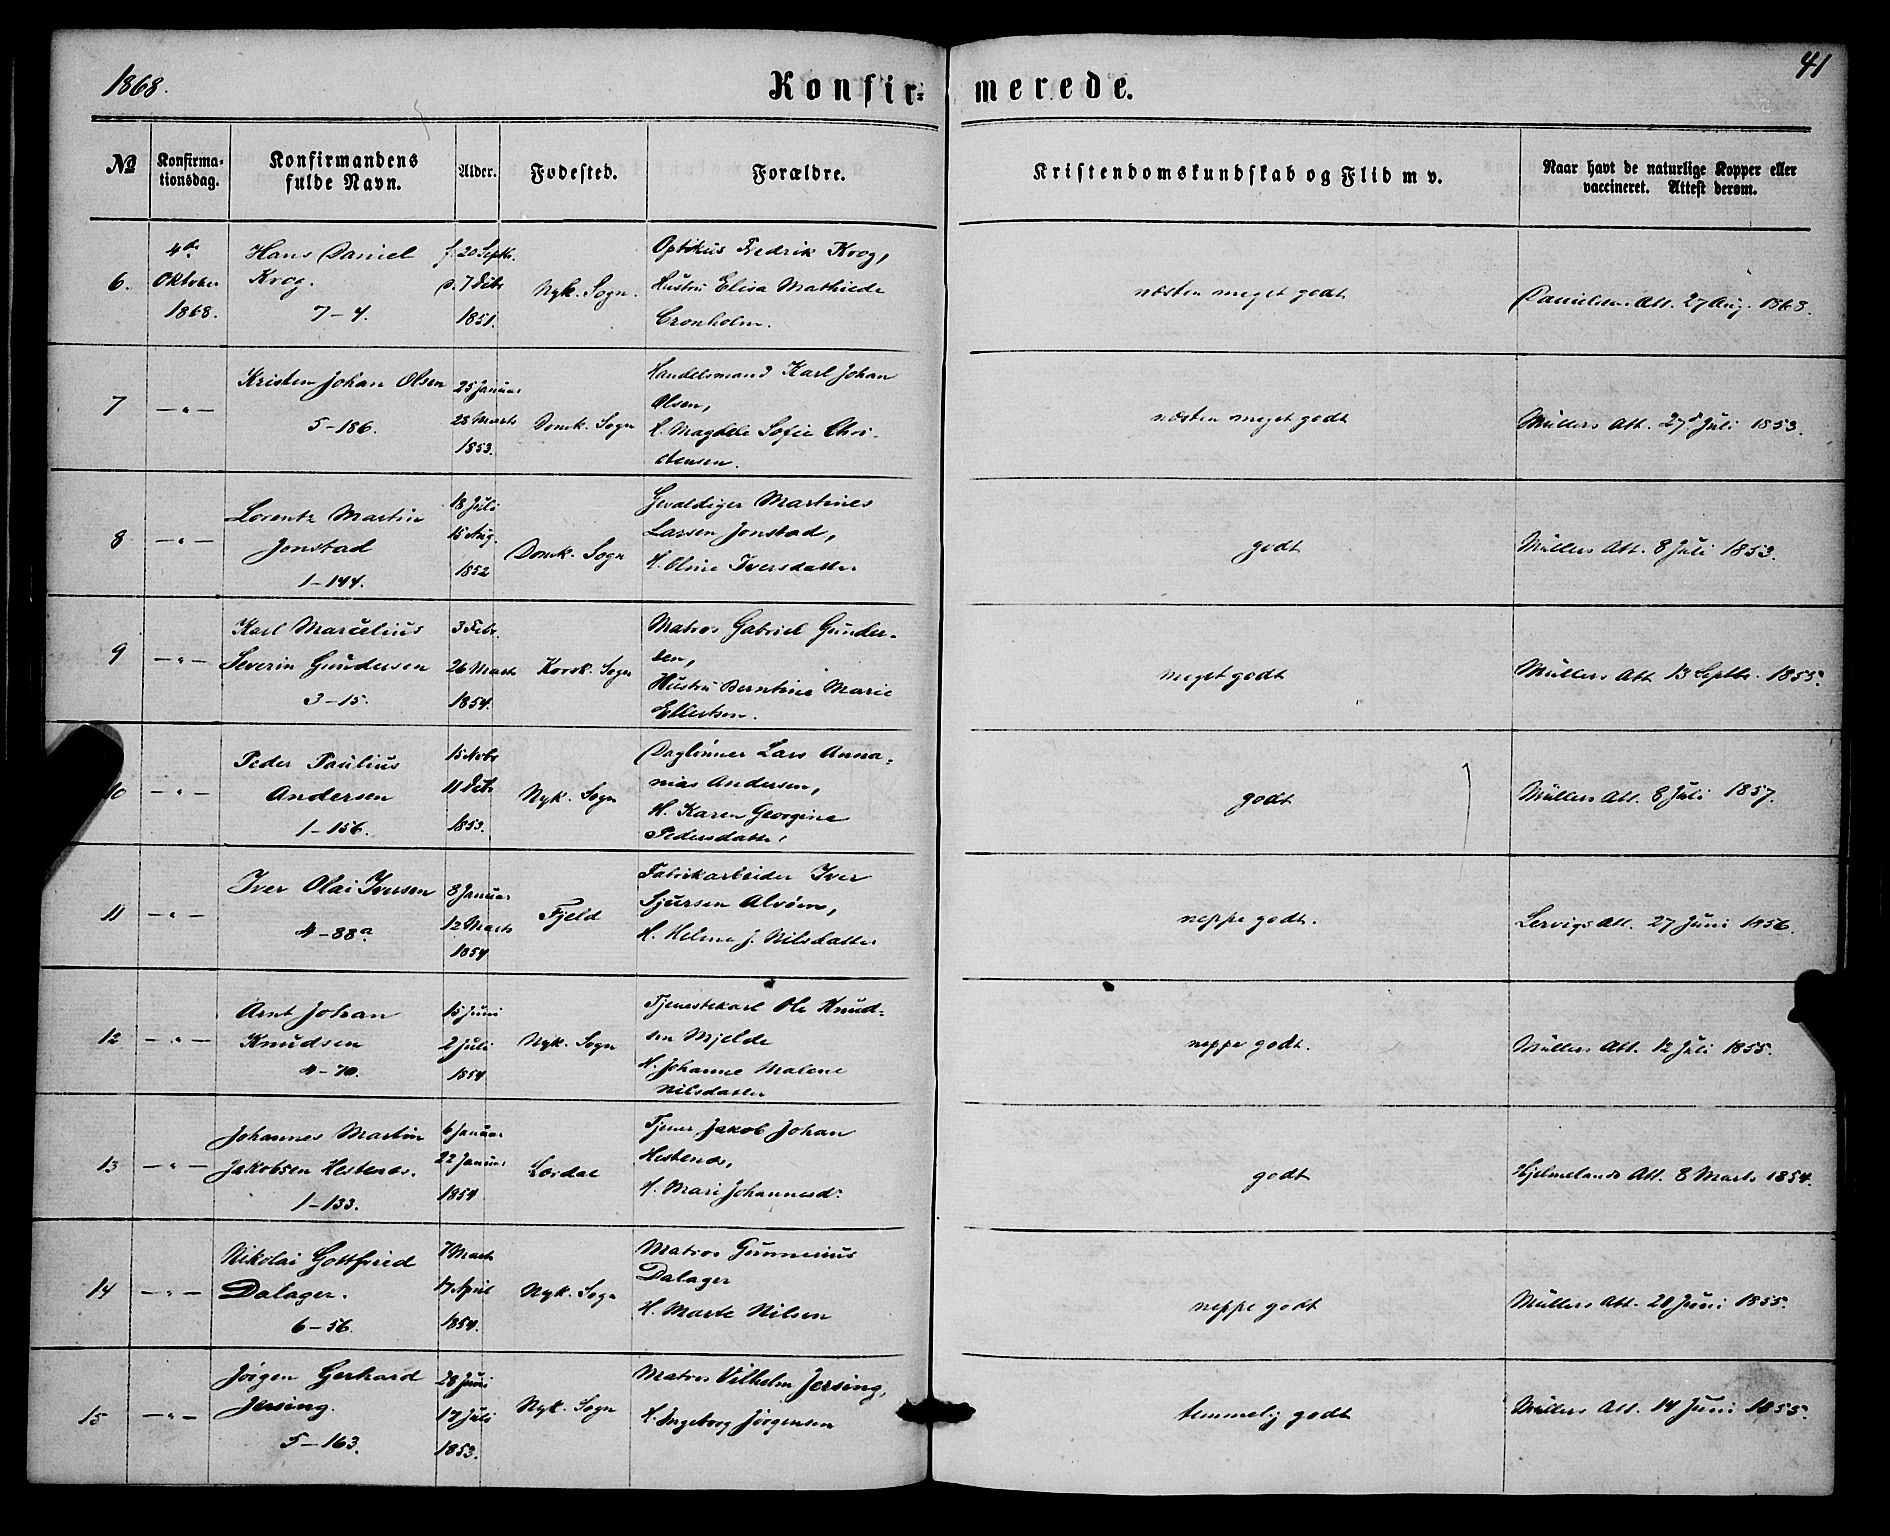 1868.
Konfir-
merede.
41
No
Konfirma-
tionsdag.
Konfirmandens
fulde Navn.
Alder.
Fødested.
Forældre.
Kristendomskundskab og Flid m v.
Naar havt de naturlige Kopper eller
vaccineret. Attest derom.
6.
4de
Oktober
1868.
Hans Daniel
Krog.
7-4.
f. 20 Septbr.
d. 7 Debr
1851.
Nyk. Sogn.
Optikus Fredrik Krog,
Hustru Elisa Mathilde
Cronholm.
næsten meget godt
Danielsens Att. 27 Aug. 1868.
7
-"-
Kristen Johan Olsen
5-186.
25 Januar
28 Marts
1853.
Domk. Sogn
Handelsmand Karl Johan
Olsen,
H. Magdele Sofie Chri-
stensen.
næsten meget godt
Müllers Att. 27 Juli 1853.
8
-"-
Lorentz Martin
Jonstad
1-144.
18 Juli
15 Aug.
1852
Domk. Sogn
Gevaldiger Martinus
Larsen Jonstad,
H. Oline Iversdatter
godt
Müllers Att. 8 Juli 1853.
9
-"-
Karl Marcelius
Severin Gundersen
3-15.
3 Febr.
26 Marts
1854.
Korsk. Sogn
Matros Gabriel Gunder-
sen,
Hustru Berntine Marie
Ellertsen.
meget godt
Müllers Att 13 Septbr. 1855.
10
-"-
Peder Paulius
Andersen
1-156.
15 Novbr
11 Debr
1853.
Nyk. Sogn
Daglønner Lars Anna-
nias Andersen,
H. Karen Georgine
Pedersdatter,
godt
Müllers Att. 8 Juli 1857.
11
-"-
Iver Olai Iversen
4-88a
8 Januar
12 Marts
1854
Fjeld
Fabrikarbeider Iver
Sjursen Alvøen,
H. Helene J. Nilsdatter
neppe godt.
Lervigs Att. 27 Juni 1856.
12
-"-
Arnt Johan
Knudsen
4-70.
15 Juni
2 Juli
1854
Nyk. Sogn
Tjenestekarl Ole Knud-
sen Mjelde
H. Johanne Malene
Nilsdatter
neppe godt.
Müllers Att. 12 Juli 1855.
13
-"-
Johannes Martin
Jakobsen Hestenæs.
1-133.
6 Januar
22 Januar
1854
Lærdal
Tjener Jakob Johan
Hestenæs,
H. Mari Johannesd.
godt
Hjelmelands Att. 8 Marts 1854.
14
-"-
Nikolai Gottfried
Dalager.
6-56.
7 Marts
17 April
1854.
Nyk. Sogn
Matros Gunnerius
Dalager
H. Marte Nilsen
neppe godt
Müllers Att. 20 Juni 1855.
15
-"-
Jørgen Gerhard
Jersing.
5-163.
28 Juni
17 Juli
1853.
Nyk. Sogn
Matros Vilhelm Jersing,
H. Ingeborg Jørgensen
temmelig godt
Müllers Att. 14 Juni 1855.